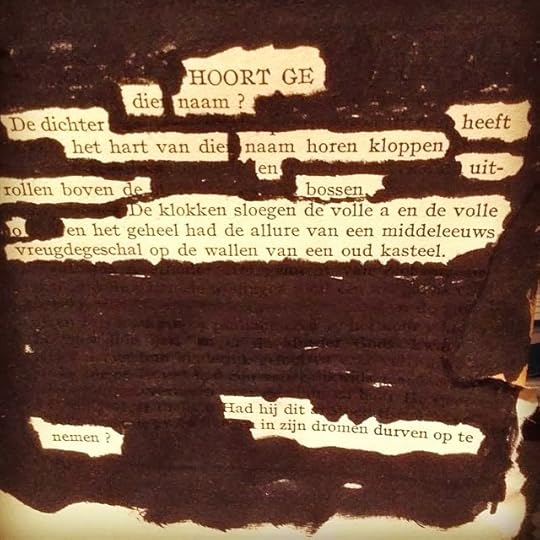 HOORT GE
die naam ?
De dichter heeft
het hart van die naam horen kloppen
en uit-
rollen boven de bossen
De klokken sloegen de volle a en de volle
o en het geheel had de allure van een middeleeuws
vreugdegeschal op de wallen van een oud kasteel.
Had hij dit
in zijn dromen durven op te
nemen ?